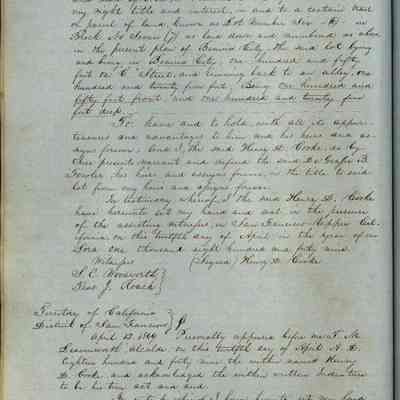 my right title and interest, in and to a certain tract
or parcel of land, known as Lot Number Six (6) in
Block No Seven (7) as laid down and numbered as above
in the present plan of Benicia City, the said lot lying
and being in Benicia City, one hundred and fifty
feet on C Street, and running back to an alley, one
hundred and twenty five feet; Being one hundred and
fifty feet front, and one hundred and twenty five
feet deep.
To have and to hold with all its appur-
tenances and advantages to him and his heirs and as-
signs forever, And I, the said Henry D. Cooke, do by
these presents warrant and defend the said De Grafs B.
Fowler, his heirs and assigns forever, in the title to said
lot from my heirs and assigns forever.
In testimony whereof, I the said Henry D. Cooke
have hereunto set my hand and seal, in the presence
of the assisting witnesses, in San Francisco Upper Cal-
ifornia, on this twelfth day of April in the year of our
Lord one thousand eight hundred and forty nine.
Witnesses (Signed) Henry D. Cooke
S. C. Woosworth
Thos J. Roach
Territory of California
District of San Francisco
April 12. 1849 Personally appeared before me T. M.
Leavenworth, Alcalde, on this twelfth day of April A. D.
Eighteen hundred and forty nine the within named Henry
D. Cooke, and acknowledged the within written Indenture
to be his own act and deed.
In witness whereof I have hereunto set my hand